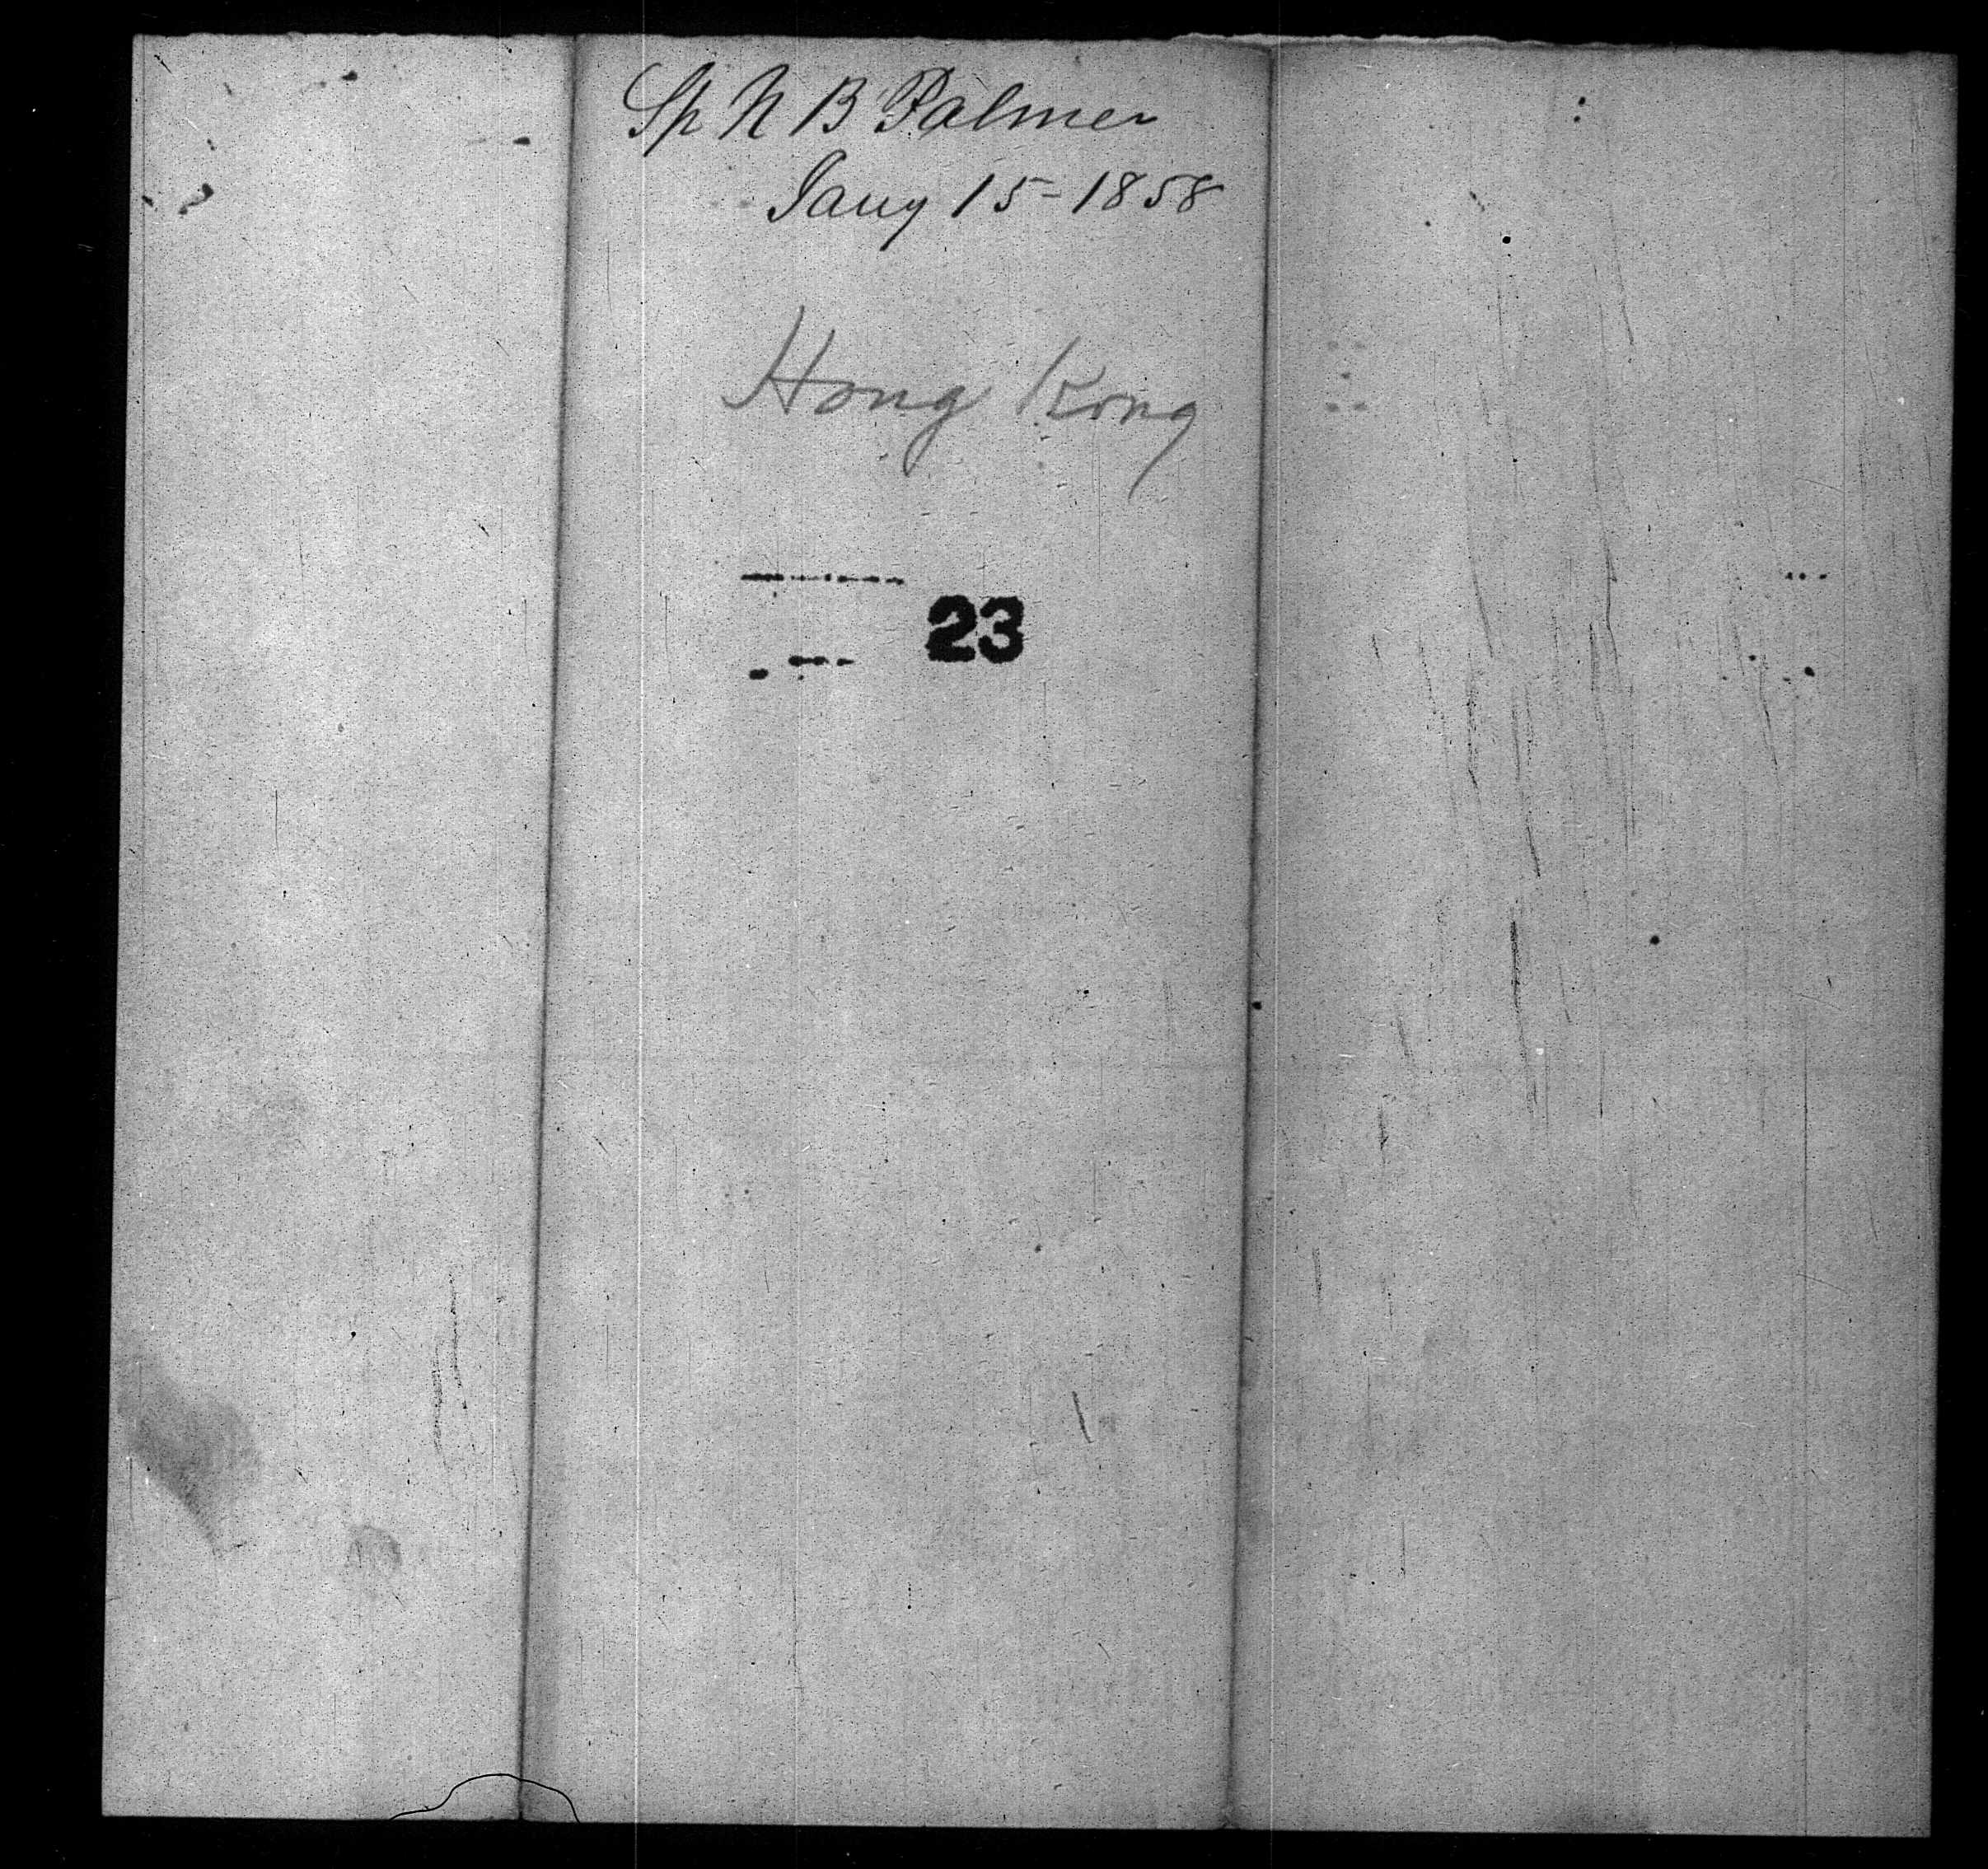 Sp N B Palmer
Jany 15-1858
Hong Kong
23